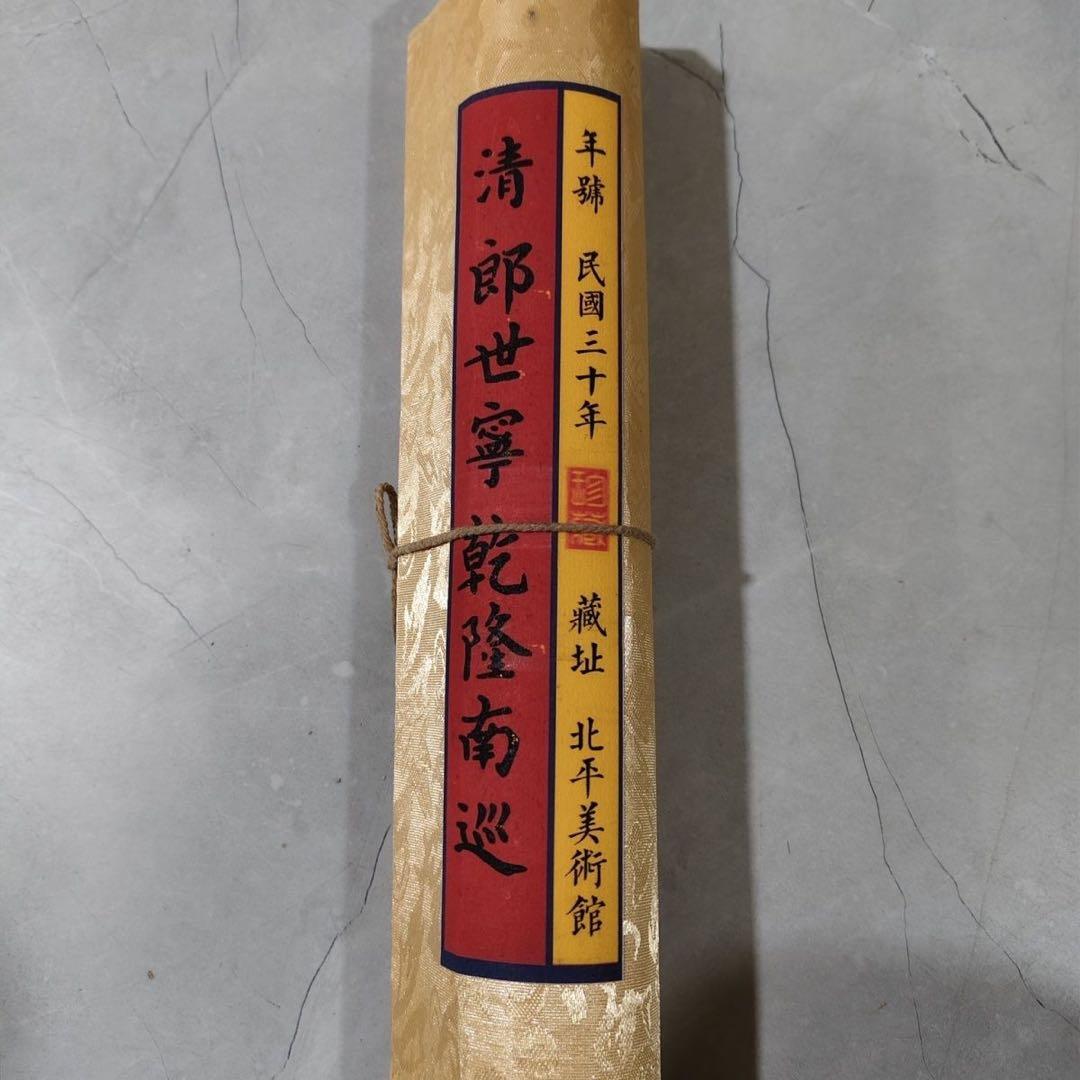 年號 民國三十年 珍藏 藏址 北平美術館
清 郎世寧乾隆南巡